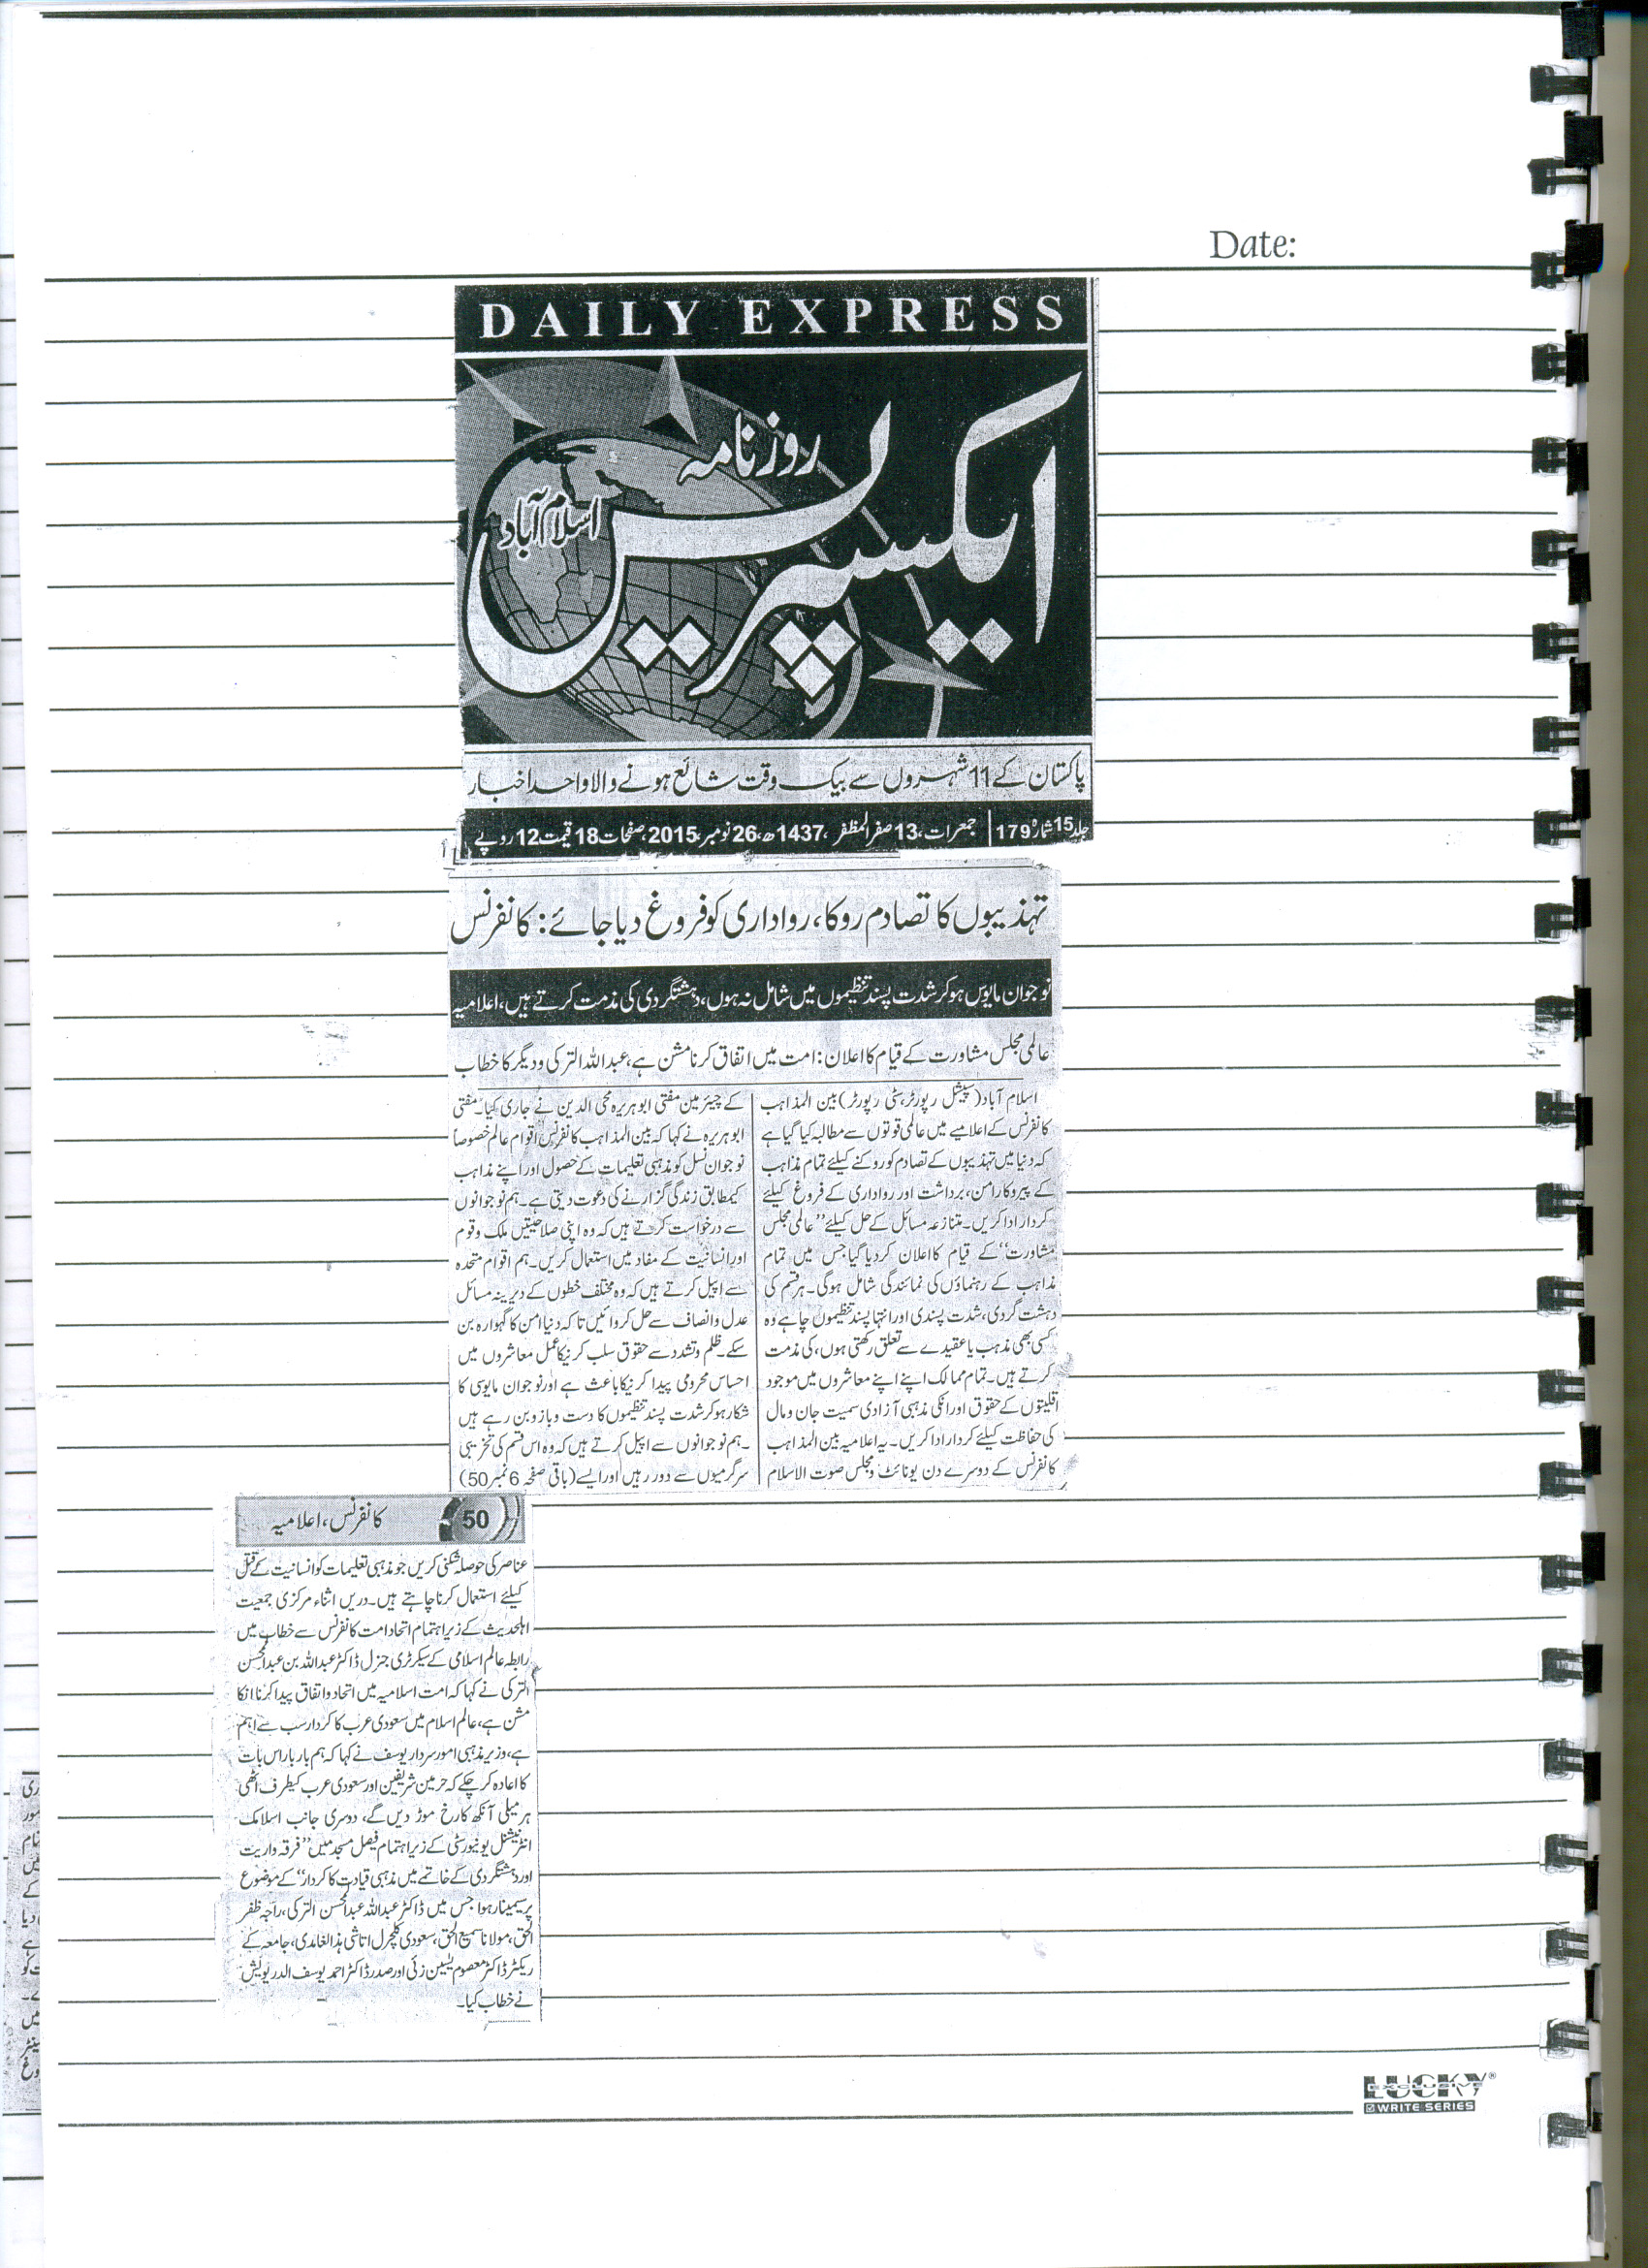 Date:
DAILY EXPRESS
روزنامہ
ایکسپریس
اسلام آباد
پاکستان کے 11 شہروں سے بیک وقت شائع ہونے والا واحد اخبار
جلد 15 شمارہ 179 | جمعرات، 13 صفر المظفر، 1437ھ، 26 نومبر، 2015، صفحات 18 قیمت 12 روپے
تہذیبوں کا تصادم روکا، رواداری کو فروغ دیا جائے: کانفرنس
نوجوان مایوس ہوکر شدت پسند تنظیموں میں شامل نہ ہوں، دہشتگردی کی مذمت کرتے ہیں، اعلامیہ
عالمی مجلس مشاورت کے قیام کا اعلان: امت میں اتفاق کرنا مشن ہے، عبداللہ الترکی و دیگر کا خطاب
اسلام آباد (سپیشل رپورٹر، سٹی رپورٹر) بین المذاہب
کانفرنس کے اعلامیے میں عالمی قوتوں سے مطالبہ کیا گیا ہے
کہ دنیا میں تہذیبوں کے تصادم کو روکنے کیلئے تمام مذاہب
کے پیروکار امن، برداشت اور رواداری کے فروغ کیلئے
کردار ادا کریں۔ متنازعہ مسائل کے حل کیلئے ’’عالمی مجلس
مشاورت‘‘ کے قیام کا اعلان کردیا گیا جس میں تمام
مذاہب کے رہنماؤں کی نمائندگی شامل ہوگی۔ ہر قسم کی
دہشت گردی، شدت پسندی اور انتہا پسند تنظیموں چاہے وہ
کسی بھی مذہب یا عقیدے سے تعلق رکھتی ہوں، کی مذمت
کرتے ہیں۔ تمام ممالک اپنے اپنے معاشروں میں موجود
اقلیتوں کے حقوق اور انکی مذہبی آزادی سمیت جان و مال
کی حفاظت کیلئے کردار ادا کریں۔ یہ اعلامیہ بین المذاہب
کانفرنس کے دوسرے دن یونائٹ و مجلس صوت الاسلام
کے چیئرمین مفتی ابوہریرہ محی الدین نے جاری کیا۔ مفتی
ابوہریرہ نے کہا کہ بین المذاہب کانفرنس اقوام عالم خصوصاً
نوجوان نسل کو مذہبی تعلیمات کے حصول اور اپنے مذاہب
کیمطابق زندگی گزارنے کی دعوت دیتی ہے۔ ہم نوجوانوں
سے درخواست کرتے ہیں کہ وہ اپنی صلاحیتیں ملک و قوم
اور انسانیت کے مفاد میں استعمال کریں۔ ہم اقوام متحدہ
سے اپیل کرتے ہیں کہ وہ مختلف خطوں کے دیرینہ مسائل
عدل و انصاف سے حل کروائیں تاکہ دنیا امن کا گہوارہ بن
سکے۔ ظلم و تشدد سے حقوق سلب کرنیکا عمل معاشروں میں
احساس محرومی پیدا کرنیکا باعث ہے اور نوجوان مایوسی کا
شکار ہوکر شدت پسند تنظیموں کا دست و بازو بن رہے ہیں
۔ ہم نوجوانوں سے اپیل کرتے ہیں کہ وہ اس قسم کی تخریبی
سرگرمیوں سے دور رہیں اور ایسے (باقی صفحہ 6 نمبر 50)
50 کانفرنس، اعلامیہ
عناصر کی حوصلہ شکنی کریں جو مذہبی تعلیمات کو انسانیت کے قتل
کیلئے استعمال کرنا چاہتے ہیں۔ دریں اثناء مرکزی جمعیت
اہلحدیث کے زیراہتمام اتحاد امت کانفرنس سے خطاب میں
رابطہ عالم اسلامی کے سیکرٹری جنرل ڈاکٹر عبداللہ بن عبدالمحسن
الترکی نے کہا کہ امت اسلامیہ میں اتحاد و اتفاق پیدا کرنا انکا
مشن ہے، عالم اسلام میں سعودی عرب کا کردار سب سے اہم
ہے، وزیر مذہبی امور سردار یوسف نے کہا کہ ہم بار بار اس بات
کا اعادہ کرچکے کہ حرمین شریفین اور سعودی عرب کیطرف اٹھی
ہر میلی آنکھ کا رخ موڑ دیں گے، دوسری جانب اسلامک
انٹرنیشنل یونیورسٹی کے زیراہتمام فیصل مسجد میں ’’فرقہ واریت
اور دہشتگردی کے خاتمے میں مذہبی قیادت کا کردار‘‘ کے موضوع
پر سیمینار ہوا جس میں ڈاکٹر عبداللہ عبدالمحسن الترکی، راجہ ظفر
الحق، مولانا سمیع الحق، سعودی کلچرل اتاشی ہذالغامدی، جامعہ کے
ریکٹر ڈاکٹر معصوم یٰسین زئی اور صدر ڈاکٹر احمد یوسف الدریویش
نے خطاب کیا۔
LUCKY
EXCLUSIVE
WRITE SERIES